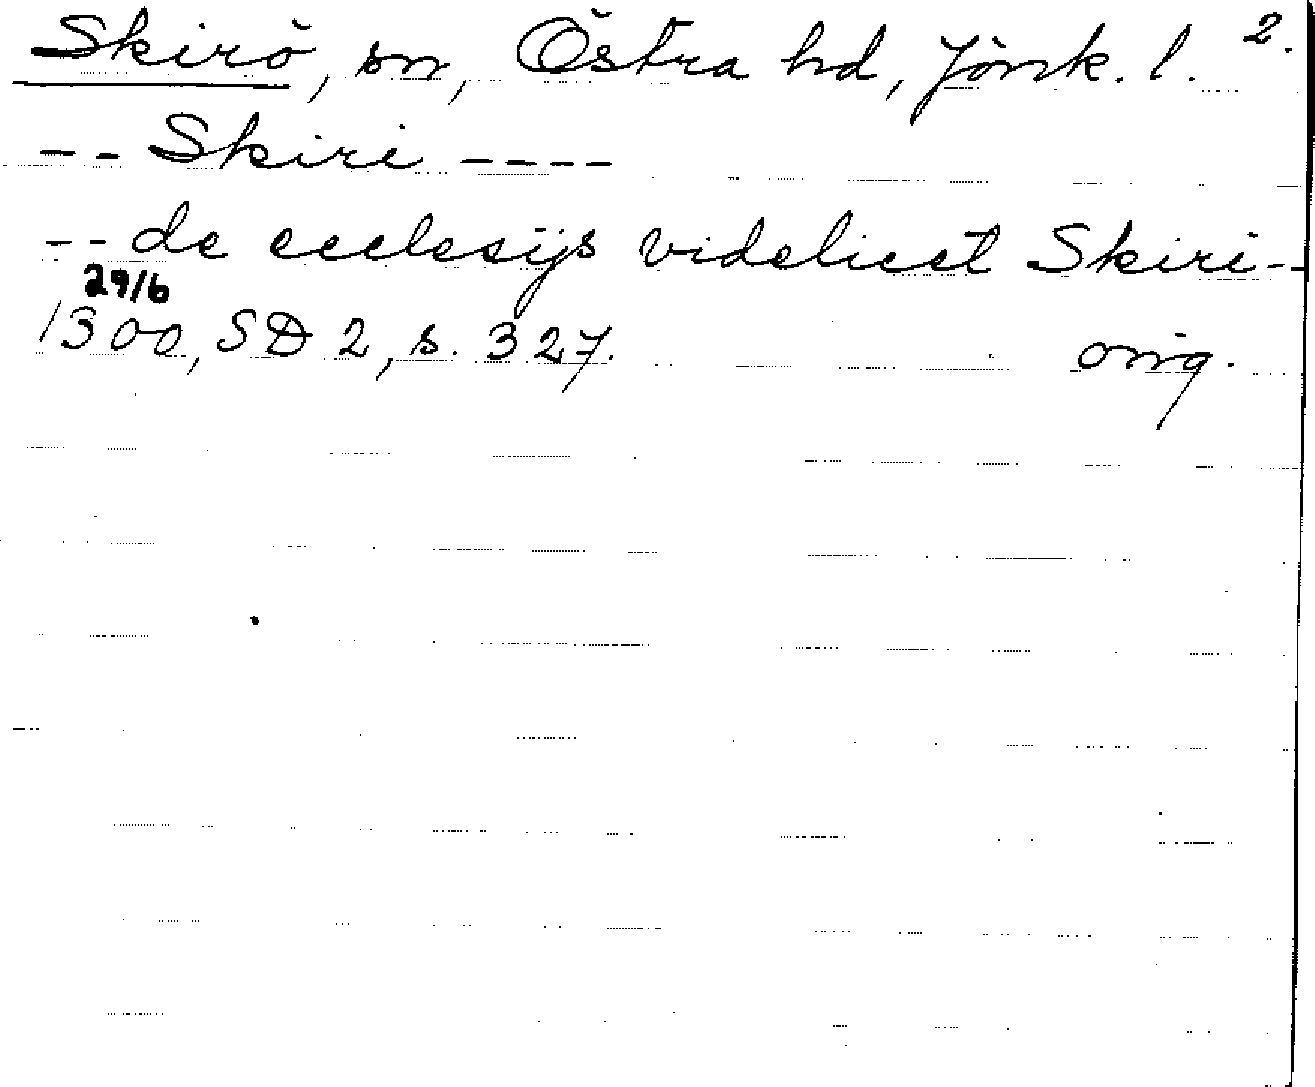 Skirö, sn, Östra hd, Jönk. l. 2.
-- Skiri ----
-- de ecclesijs videlicet Skiri--
29/6
1300, SD 2, s. 327. orig.